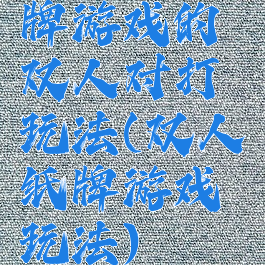 牌游戏的
双人对打
玩法(双人
纸牌游戏
玩法)